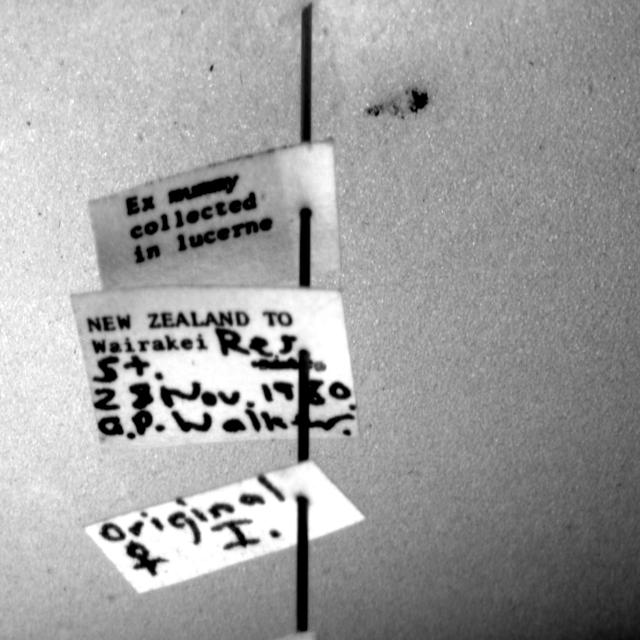 Ex mummy
collected
in lucerne
NEW ZEALAND TO
Wairakei Res
St.
28 Nov. 1980.
a.P. Walker.
Original
♀ I.